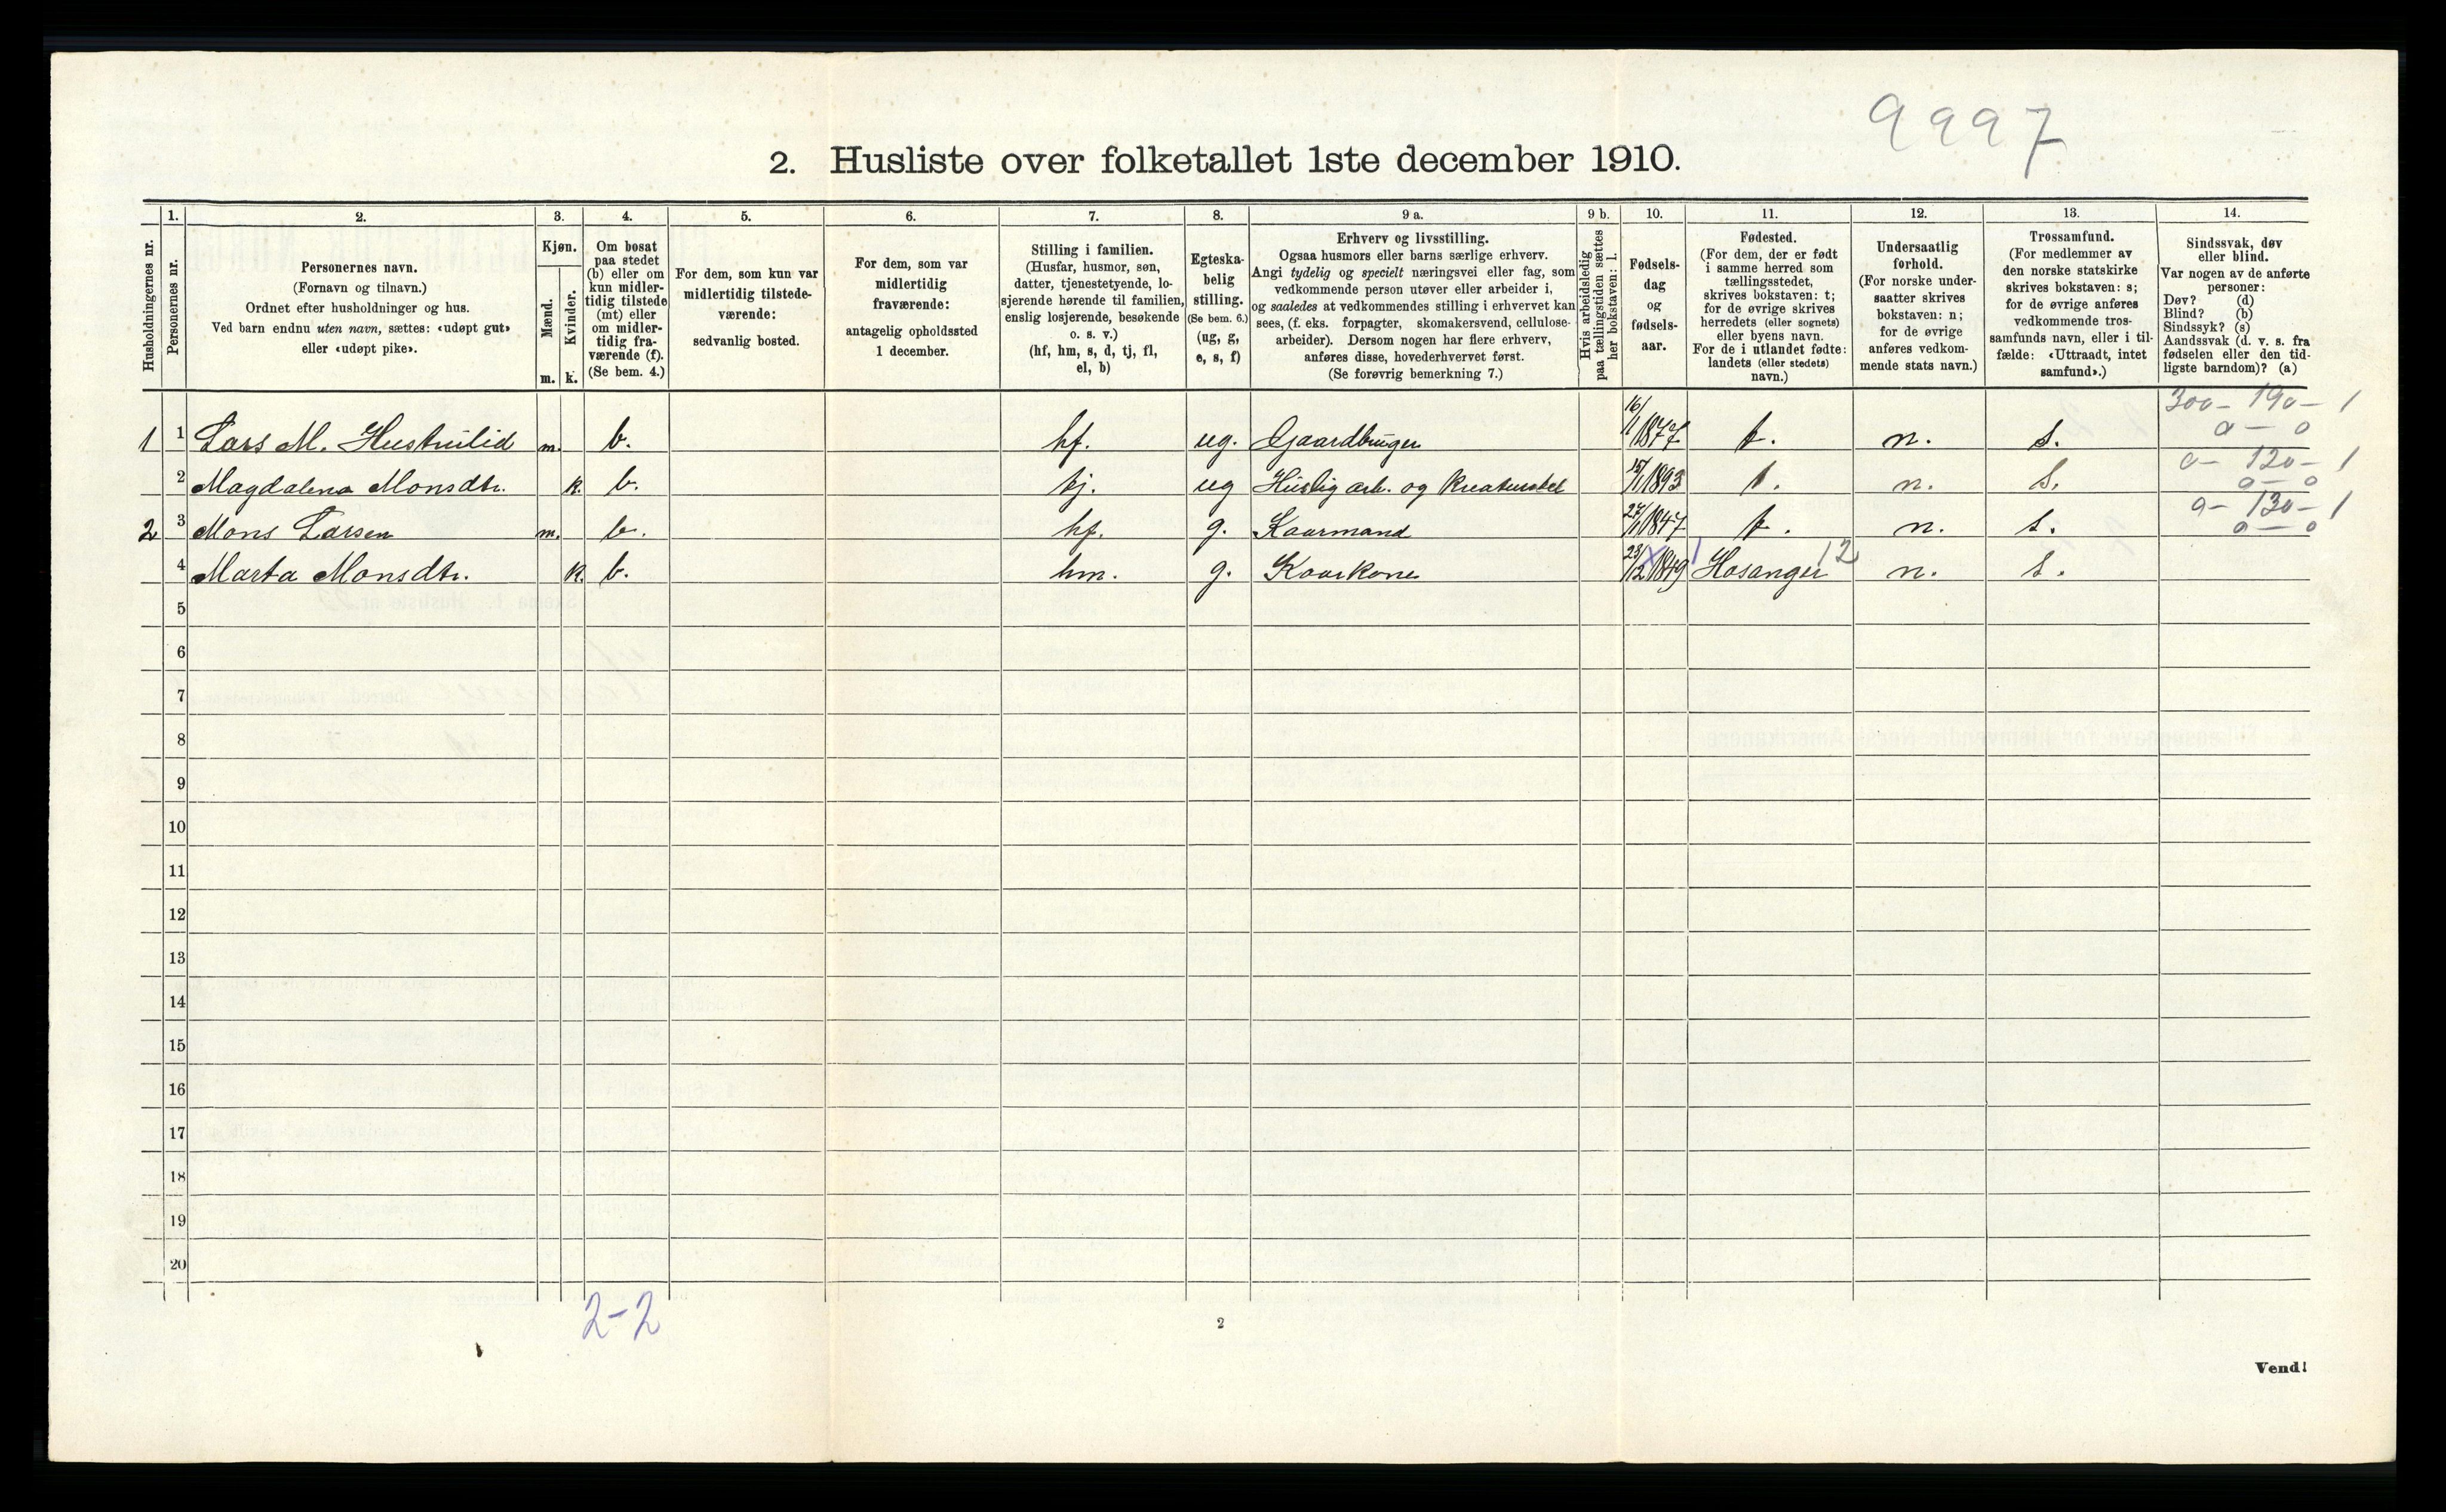 9997
2. Husliste over folketallet 1ste december 1910.
Husholdningernes nr.
1.
Personernes nr.
2.
Personernes navn.
(Fornavn og tilnavn.)
Ordnet efter husholdninger og hus.
Ved barn endnu uten navn, sættes: «udøpt gut»
eller «udøpt pike».
3.
Kjøn.
Mænd.
m.
Kvinder.
k.
4.
Om bosat
paa stedet
(b) eller om
kun midler-
tidig tilstede
(mt) eller
om midler-
tidig fra-
værende (f).
(Se bem. 4.)
5.
For dem, som kun var
midlertidig tilstede-
værende:
sedvanlig bosted.
6.
For dem, som var
midlertidig
fraværende:
antagelig opholdssted
1 december.
7.
Stilling i familien.
(Husfar, husmor, søn,
datter, tjenestetyende, lo-
sjerende hørende til familien,
enslig losjerende, besøkende
o. s. v.)
(hf, hm, s, d, tj, fl,
el, b)
8.
Egteska-
belig
stilling.
(Se bem. 6.)
(ug, g,
e, s, f)
9 a.
Erhverv og livsstilling.
Ogsaa husmors eller barns særlige erhverv.
Angi tydelig og specielt næringsvei eller fag, som
vedkommende person utøver eller arbeider i,
og saaledes at vedkommendes stilling i erhvervet kan
sees, (f. eks. forpagter, skomakersvend, cellulose-
arbeider). Dersom nogen har flere erhverv,
anføres disse, hovederhvervet først.
(Se forøvrig bemerkning 7.)
9 b.
Hvis arbeidsledig
paa tællingstiden sættes
her bokstaven: l.
10.
Fødsels-
dag
og
fødsels-
aar.
11.
Fødested.
(For dem, der er født
i samme herred som
tællingsstedet,
skrives bokstaven: t;
for de øvrige skrives
herredets (eller sognets)
eller byens navn.
For de i utlandet fødte:
landets (eller stedets)
navn.)
12.
Undersaatlig
forhold.
(For norske under-
saatter skrives
bokstaven: n;
for de øvrige
anføres vedkom-
mende stats navn.)
13.
Trossamfund.
(For medlemmer av
den norske statskirke
skrives bokstaven: s;
for de øvrige anføres
vedkommende tros-
samfunds navn, eller i til-
fælde: «Uttraadt, intet
samfund».)
14.
Sindssvak, døv
eller blind.
Var nogen av de anførte
personer:
Døv? (d)
Blind? (b)
Sindssyk? (s)
Aandssvak (d. v. s. fra
fødselen eller den tid-
ligste barndom)? (a)
300 - 190 - 1
0 - 0
1 1 Lars M. Hustuilid m. b. hf. ug. Gaardbruger 16/1 1877 t. n. s.
0 - 120 - 1
0 - 0
2 Magdalena Monsdtr. k. b. tj. ug Huslig arb. og Kreaturstel 15/1 1893 t. n. s.
0 - 130 - 1
0 - 0
2 3 Mons Larsen m. b. hf. g. Kaarmand 27/1 1847 t. n. s.
4 Marta Monsdtr. k. b. hm. g. Kaarkone 23/12 1849 Hosanger 12 n. s.
5
6
7
8
9
10
11
12
13
14
15
16
17
18
19
20
2-2
2
Vend!